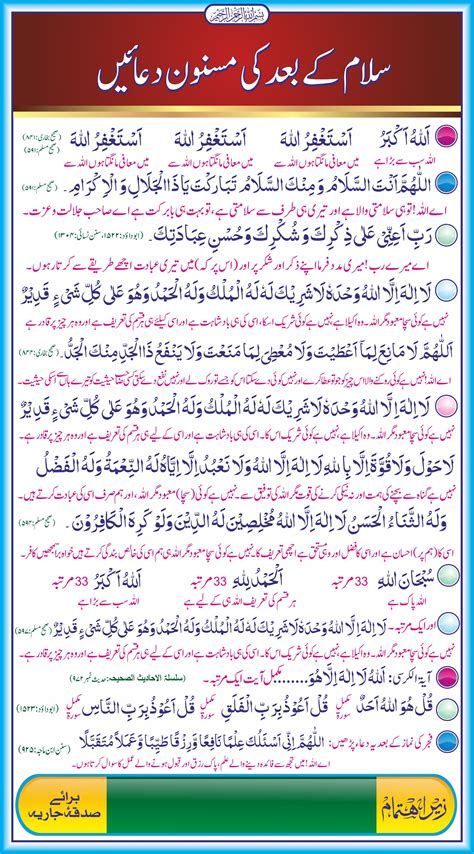 بِسْمِ اللهِ الرَّحْمٰنِ الرَّحِيْمِ
سلام کے بعد کی مسنون دعائیں
اَللهُ اَكْبَرُ اَسْتَغْفِرُ اللهَ اَسْتَغْفِرُ اللهَ اَسْتَغْفِرُ اللهَ (صحیح بخاری: ۸۴۱) (صحیح مسلم: ۵۹۱)
اللہ سب سے بڑا ہے میں معافی مانگتا ہوں اللہ سے میں معافی مانگتا ہوں اللہ سے میں معافی مانگتا ہوں اللہ سے
اَللّٰهُمَّ اَنْتَ السَّلَامُ وَمِنْكَ السَّلَامُ تَبَارَكْتَ يَاذَا الْجَلَالِ وَالْاِكْرَامِ.
اے اللہ! تو ہی سلامتی والا ہے اور تیری ہی طرف سے سلامتی ہے، تو بہت ہی بابرکت ہے اے صاحب جلالت و عزت۔
رَبِّ اَعِنِّيْ عَلٰى ذِكْرِكَ وَشُكْرِكَ وَحُسْنِ عِبَادَتِكَ. (ابوداؤد: ۱۵۲۲، سنن نسائی: ۱۳۰۴)
اے میرے رب! میری مدد فرما اپنے ذکر اور شکر پر اور (اس پر کہ) میں تیری عبادت اچھے طریقے سے کرتا رہوں۔
لَا اِلٰهَ اِلَّا اللهُ وَحْدَهٗ لَا شَرِيْكَ لَهٗ لَهُ الْمُلْكُ وَلَهُ الْحَمْدُ وَهُوَ عَلٰى كُلِّ شَيْءٍ قَدِيْرٌ
نہیں ہے کوئی سچا معبود مگر اللہ، وہ اکیلا ہے، نہیں ہے کوئی شریک اسکا، اسی کی ہی بادشاہت ہے اور اسی کے لیے ہی ہر قسم کی تعریف ہے اور وہ ہر چیز پر قادر ہے
اَللّٰهُمَّ لَا مَانِعَ لِمَا اَعْطَيْتَ وَلَا مُعْطِيَ لِمَا مَنَعْتَ وَلَا يَنْفَعُ ذَا الْجَدِّ مِنْكَ الْجَدُّ. (صحیح بخاری: ۸۴۴)
اے اللہ! نہیں ہے کوئی روکنے والا اس چیز کو جو تو عطا کرے اور نہیں ہے کوئی دے سکتا اس کو جسے تو روک لے اور نہیں نفع دے سکتی
لَا اِلٰهَ اِلَّا اللهُ وَحْدَهٗ لَا شَرِيْكَ لَهٗ لَهُ الْمُلْكُ وَلَهُ الْحَمْدُ وَهُوَ عَلٰى كُلِّ شَيْءٍ قَدِيْرٌ
نہیں ہے کوئی سچا معبود مگر اللہ، وہ اکیلا ہے نہیں ہے کوئی شریک اس کا، اسی کی ہی بادشاہت ہے اور اسی کے لیے ہی ہر قسم کی تعریف ہے اور وہ ہر چیز پر قادر ہے۔
لَاحَوْلَ وَلَا قُوَّةَ اِلَّا بِاللهِ لَا اِلٰهَ اِلَّا اللهُ وَلَا نَعْبُدُ اِلَّا اِيَّاهُ لَهُ النِّعْمَةُ وَلَهُ الْفَضْلُ
نہیں ہے گناہ سے بچنے کی ہمت اور نہ نیکی کرنے کی قوت مگر اللہ کی توفیق سے، نہیں ہے کوئی (سچا) معبود مگر اللہ، اور ہم صرف اسی کی عبادت کرتے ہیں،
وَلَهُ الثَّنَاءُ الْحَسَنُ لَا اِلٰهَ اِلَّا اللهُ مُخْلِصِيْنَ لَهُ الدِّيْنَ وَلَوْ كَرِهَ الْكَافِرُوْنَ. (صحیح مسلم: ۵۹۴)
اسی کا (ہم پر) احسان ہے اور اسی کا فضل اور وہی مستحق ہے اچھی تعریف کا، نہیں ہے کوئی سچا معبود مگر اللہ ہم اسی کی خالص بندگی کرتے ہیں خواہ برا سمجھیں کافر۔
سُبْحَانَ اللهِ 33 مرتبہ اَلْحَمْدُ لِلهِ 33 مرتبہ اَللهُ اَكْبَرُ 33 مرتبہ
اللہ پاک ہے ہر قسم کی تعریف اللہ ہی کے لیے ہے اللہ سب سے بڑا ہے
اور ایک مرتبہ۔ لَا اِلٰهَ اِلَّا اللهُ وَحْدَهٗ لَا شَرِيْكَ لَهٗ لَهُ الْمُلْكُ وَلَهُ الْحَمْدُ وَهُوَ عَلٰى كُلِّ شَيْءٍ قَدِيْرٌ (صحیح مسلم: ۵۹۷)
نہیں ہے کوئی سچا معبود مگر اللہ، وہ اکیلا ہے، نہیں ہے کوئی شریک اس کا، اسی کی ہی بادشاہت ہے اور اسی کے لیے ہی ہر قسم کی تعریف ہے اور وہ ہر چیز پر قادر ہے۔
آیۃ الکرسی: اَللهُ لَا اِلٰهَ اِلَّا هُوَ...... مکمل آیت ایک مرتبہ۔ (سلسلة الاحاديث الصحيحة: حدیث نمبر ۹۷۲)
قُلْ هُوَ اللهُ اَحَدٌ مکمل سورۃ قُلْ اَعُوْذُ بِرَبِّ الْفَلَقِ مکمل سورۃ قُلْ اَعُوْذُ بِرَبِّ النَّاسِ مکمل سورۃ (ابوداؤد: ۱۵۲۳)
فجر کی نماز کے بعد یہ دعاء پڑھیں: اَللّٰهُمَّ اِنِّيْ اَسْئَلُكَ عِلْمًا نَافِعًا وَرِزْقًا طَيِّبًا وَعَمَلًا مُتَقَبَّلًا (سنن ابن ماجہ: ۹۲۵)
اے اللہ! میں تجھ سے فائدہ دینے والے علم، پاک رزق اور قبول ہونے والے عمل کا سوال کرتا ہوں۔
زیر اہتمام
برائے
صدقۂ جاریہ